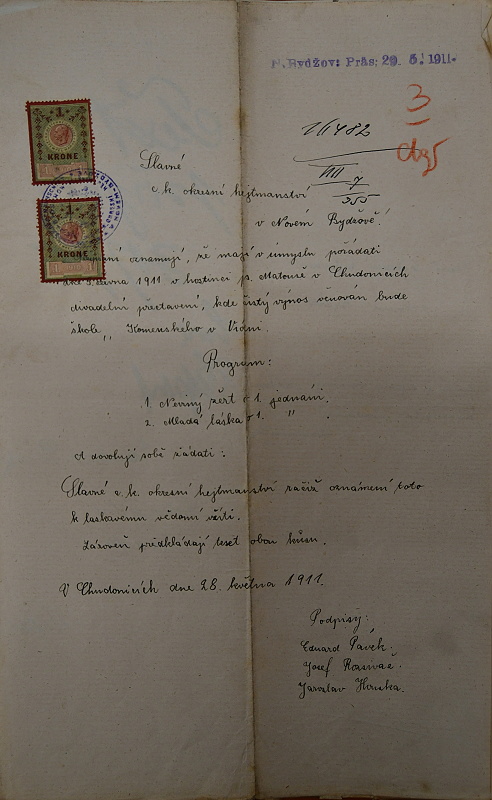 N. Bydžov: Präs: 29. 5. 1911.
3
1/1482
VIII
7
355
1
KRONE
1
KRONE
Slavné
c. k. okresní hejtmanství
v Novém Bydžově!
oznamují, že mají v úmyslu pořádati
dne 5. června 1911 v hostinci p. Matouše v Chudonicích
divadelní představení, kde čistý výnos věnován bude
škole „Komenského v Vídni.
Program:
1. Nevinný žert o 1. jednání.
2. Mladá láska o 1. "
A dovolují sobě žádati:
Slavné c. k. okresní hejtmanství račiž oznámení toto
k laskavému vědomí vzíti.
Zároveň předkládají text obou kusů.
V Chudonicích dne 28. května 1911.
Podpisy:
Eduard Pávek.
Josef
Jaroslav Hruška.